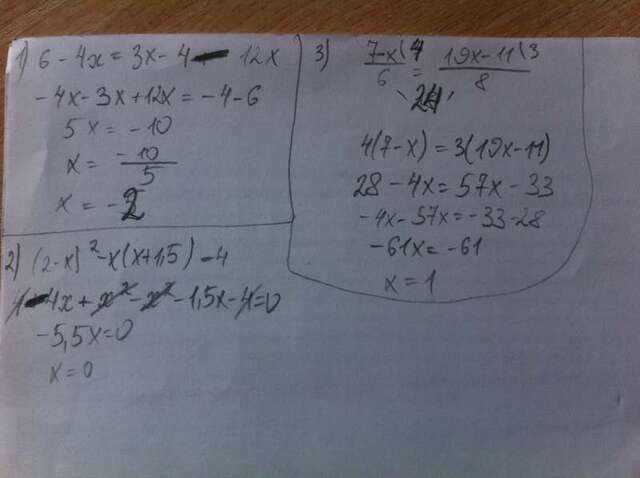 1) 6 - 4x = 3x - 4 - 12x
-4x - 3x + 12x = -4 - 6
5x = -10
x = -10/5
x = -2
2) (2-x)² - x(x+1,5) = 4
4 - 4x + x² - x² - 1,5x - 4 = 0
-5,5x = 0
x = 0
3) 7-x\4 / 6 = 19x-11\3 / 8
24
4(7-x) = 3(19x-11)
28 - 4x = 57x - 33
-4x - 57x = -33 - 28
-61x = -61
x = 1